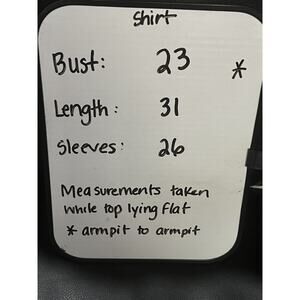 Shirt
Bust: 23 *
Length: 31
Sleeves: 26
Measurements taken
while top lying flat
* armpit to armpit